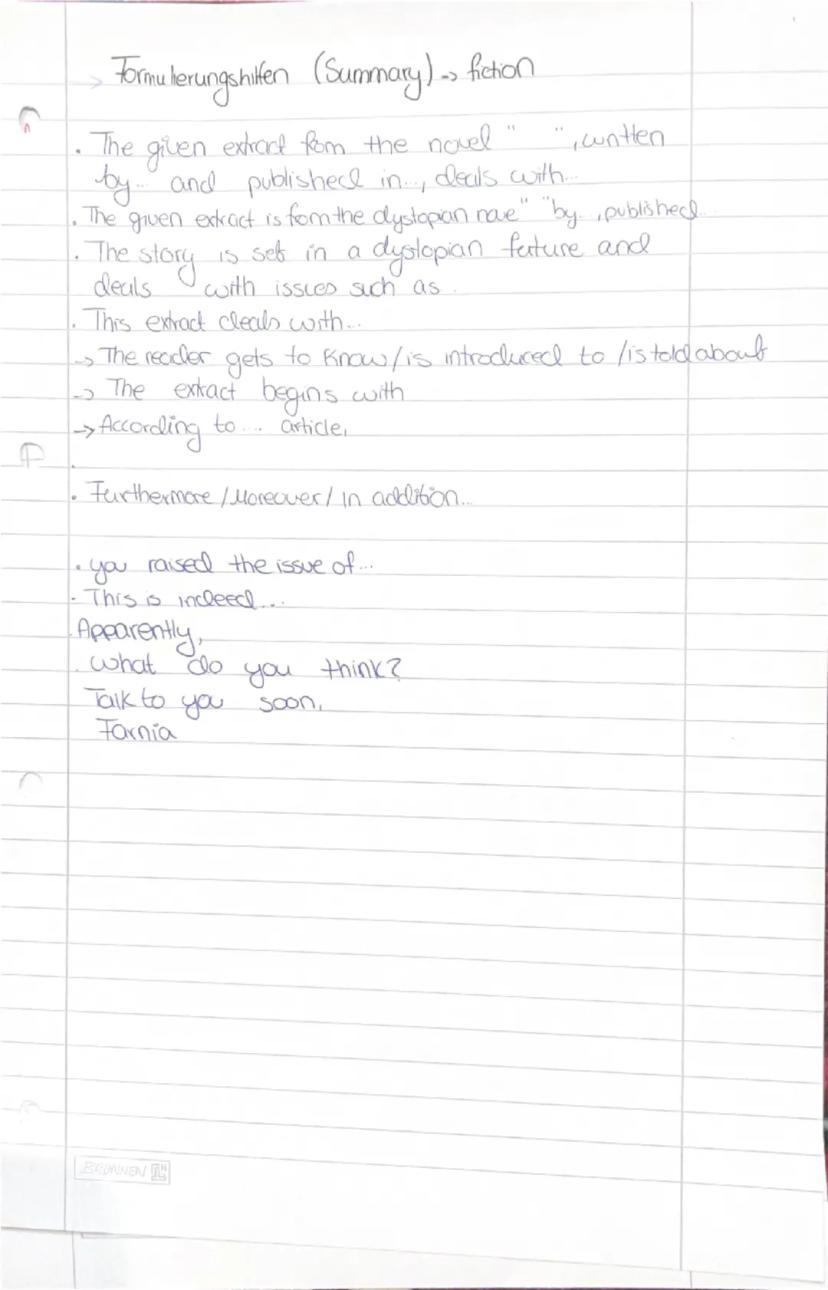 > Formulierungshilfen (Summary) -> fiction
. The given extract from the novel " ", written
by... and published in..., deals with...
. The given extract is from the dystopian nove" "by..., published
. The story is set in a dystopian future and
deals with issues such as.
. This extract deals with...
-> The reader gets to know/is introduced to /is told about
-> The extract begins with
-> According to... article,
.
. Furthermore/Moreover/in addition...
. you raised the issue of...
- This is indeed...
. Apparently,
. What do you think?
Talk to you soon,
Farnia
BRUNNEN